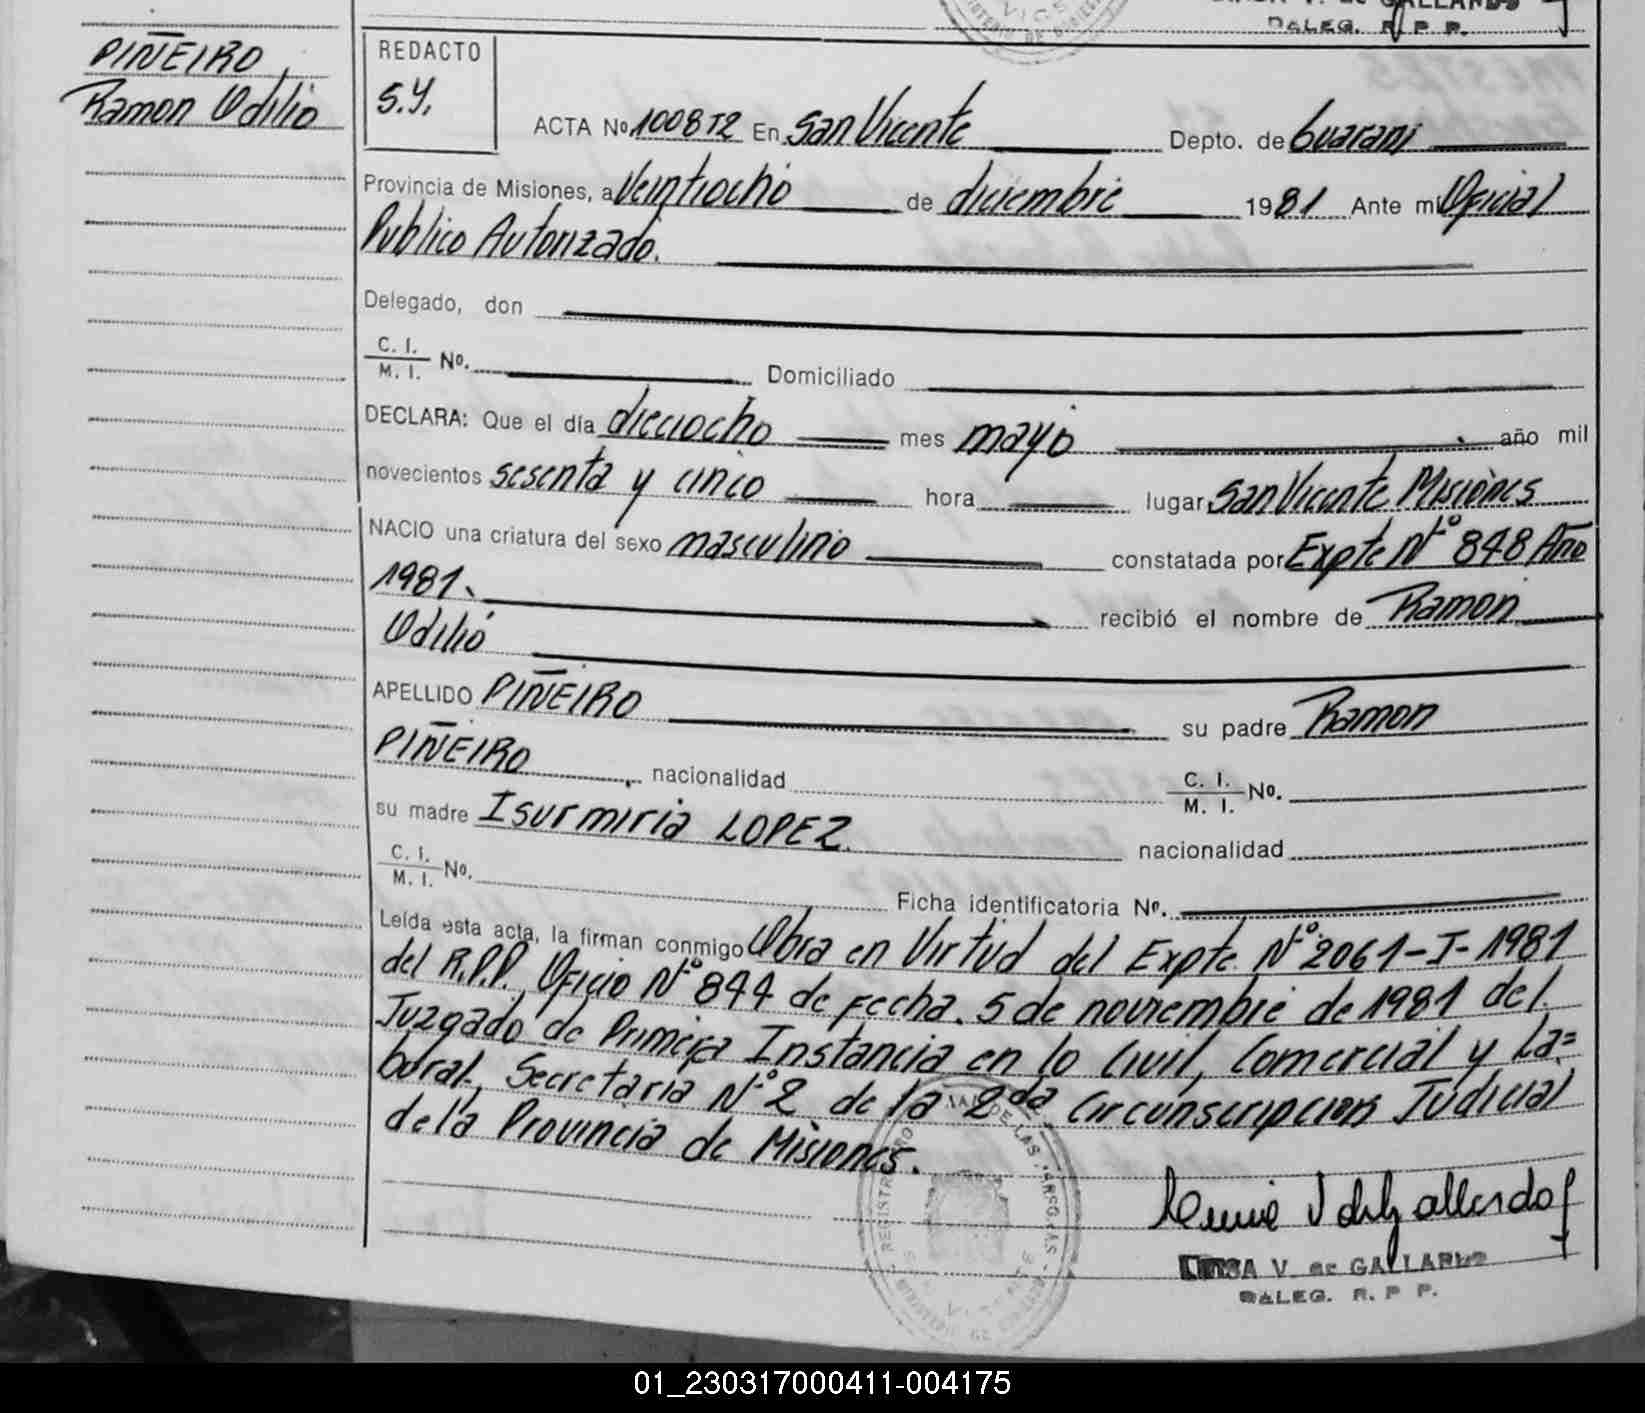 GALLARDO
DALEG. R. P. P.
PIÑEIRO
Ramon Odilio
REDACTO
S.Y.
ACTA No. 1008T2 En San Vicente Depto. de Guarani
Provincia de Misiones, a Veintiocho de diciembre 1981 Ante mi Oficial
Publico Autorizado.
Delegado, don
C. I. / M. I. No. Domiciliado
DECLARA: Que el día dieciocho mes mayo año mil
novecientos sesenta y cinco hora lugar San Vicente Misiones
NACIO una criatura del sexo masculino constatada por Expte Nº 848 Año
1981. recibió el nombre de Ramon
Odilio
APELLIDO PIÑEIRO su padre Ramon
PIÑEIRO nacionalidad C. I. / M. I. No.
su madre Isurmiria LOPEZ. nacionalidad
C. I. / M. I. No. Ficha identificatoria No.
Leída esta acta, la firman conmigo Obra en Virtud del Expte. Nº 2061-I-1981
del R.P.P. Oficio Nº 844 de Fecha. 5 de noviembre de 1981 del
Juzgado de Primera Instancia en lo Civil, Comercial y La=
boral, Secretaria Nº 2 de la 2da Circunscripcion Judicial
de la Provincia de Misiones.
V. de GALLARDO
DALEG. R. P. P.
01_230317000411-004175